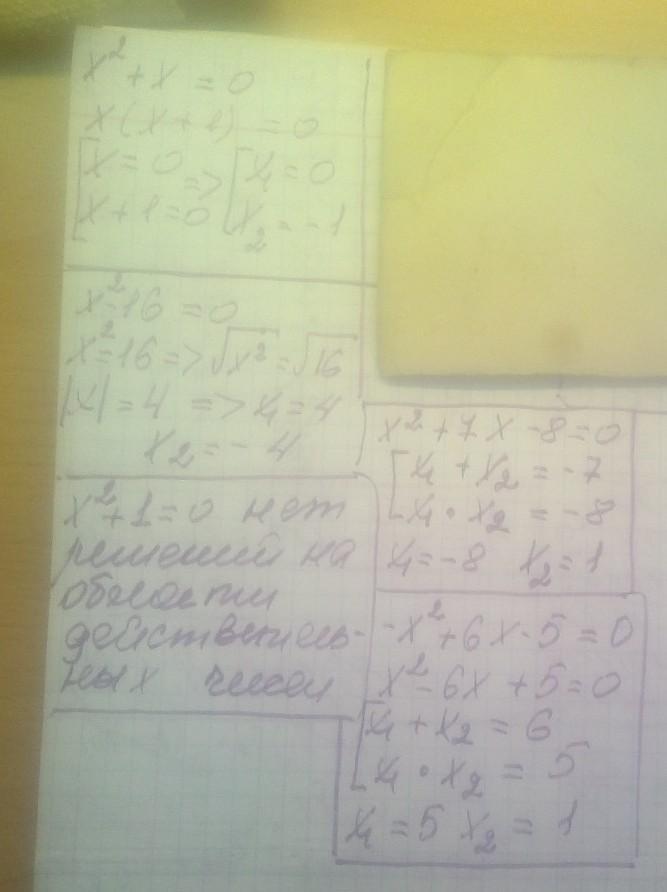 x² + x = 0
x(x+1) = 0
[x = 0 => [x₁ = 0
[x+1=0 [x₂ = -1
x²-16 = 0
x²=16 => √x² = √16
|x| = 4 => x₁ = 4
x₂ = -4
x²+1=0 нет
решений на
области
действитель-
ных чисел
x²+7x-8=0
[x₁ + x₂ = -7
[x₁ · x₂ = -8
x₁=-8 x₂=1
-x²+6x-5=0
x²-6x+5=0
[x₁ + x₂ = 6
[x₁ · x₂ = 5
x₁ = 5 x₂ = 1